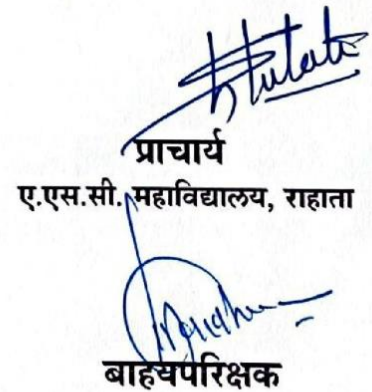 प्राचार्य
ए.एस.सी. महाविद्यालय, राहाता
बाहयपरिक्षक